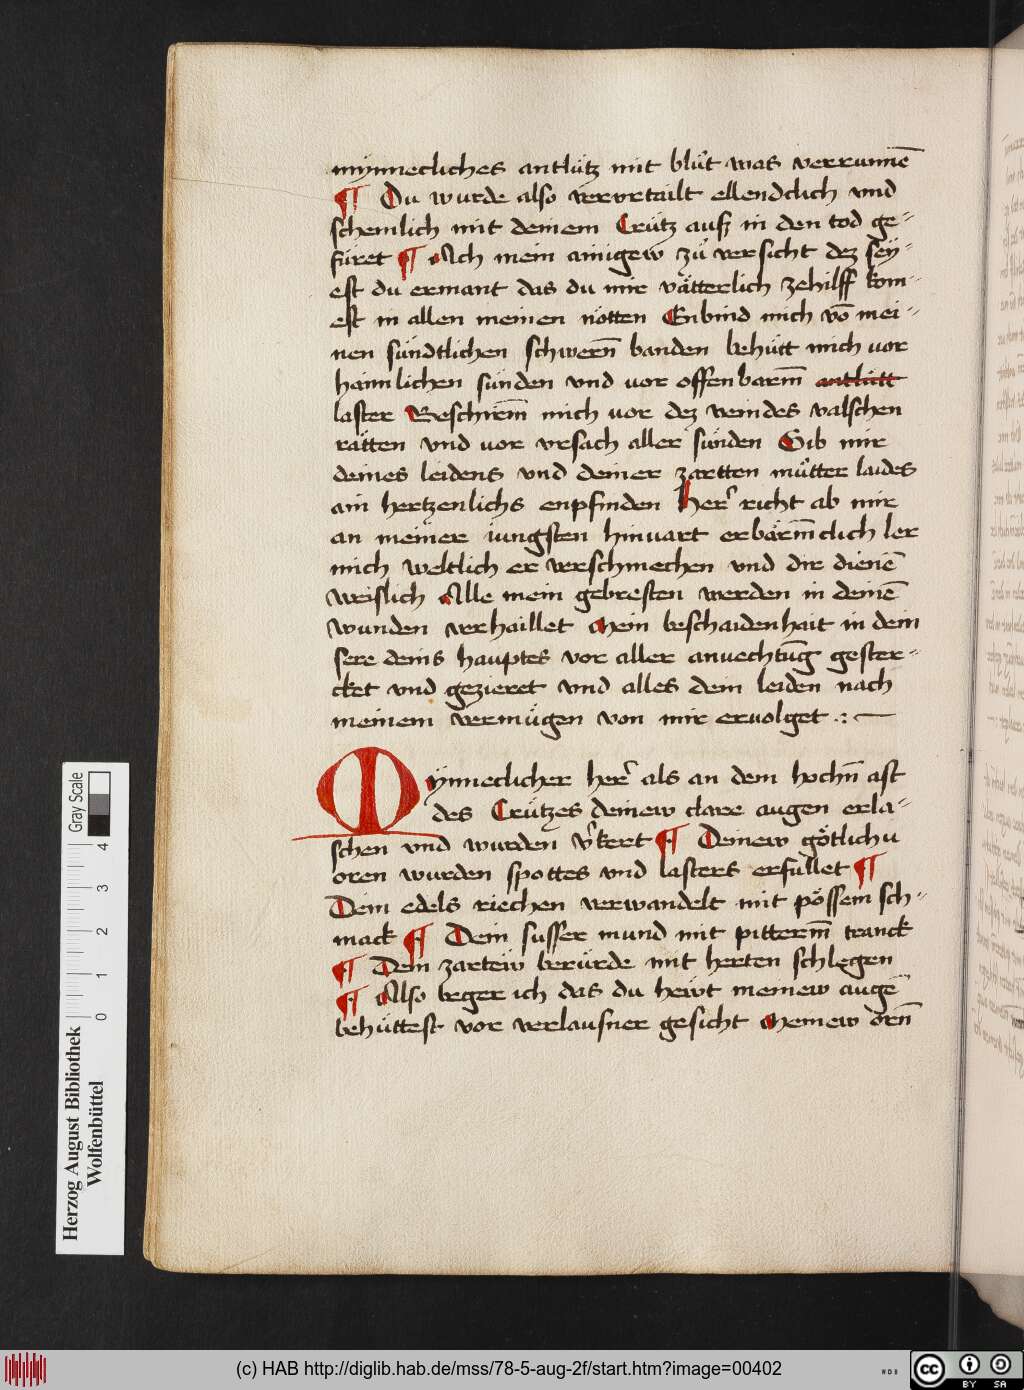 mýnnecliches antlütz mit blůt was verrunnē
¶ Du wurde also vervrtailt ellendclich vnd
schemlich mit deinem Crütz ausz in den tod ge⸗
füret ¶ Ach mein ainigew zů versicht dez seÿ⸗
est du ermant das du mir vätterlich zehilff kom⸗
est in allen meinen nötten Enbind mich vō mei⸗
nen sündtlichen schwern̄ banden behütt mich vor
haimlichen sünden vnd vor offenbarm̄ antlütt
laster Beschirem̄ mich vor dez veindes valschen
rätten vnd vor vrsach aller sünden Gib mir
deines leidens vnd deiner zartten můtter laides
ain hertzenlichs enpfinden Her᷑ richt ab mir
an meiner iungsten hinuart erbärm̄clich ler
mich weltlich er verschmechen vnd dir dienē
weislich Alle mein gebresten werden in deinē
wunden verhaillet Mein beschaidenhait in dein
sere deins hauptes vor aller anuechtūg gester⸗
cket vnd gezieret vnd alles dein leiden nach
meinem vermügen von mir ervolget .:—
Mýnneclicher her᷑ als an dem hochn̄ ast
des Crützes deinew clare augen erla⸗
schen vnd wurden v᷑kert ¶ Deinew götlichu
oren wurden spottes vnd lasters erfüllet ¶
Dein edels riechen verwandelt mit pössem sch⸗
mack ¶ Dein susser mund mit pitterm̄ tranck
¶ Dein zarteiw berürde mit herten schlegen
¶ Also beger ich das du hewt meinew augē
behüttest vor verlausner gesicht Meinew orn̄
Herzog August Bibliothek
Wolfenbüttel
Gray Scale
0 1 2 3 4
(c) HAB http://diglib.hab.de/mss/78-5-aug-2f/start.htm?image=00402
WDB
cc BY SA